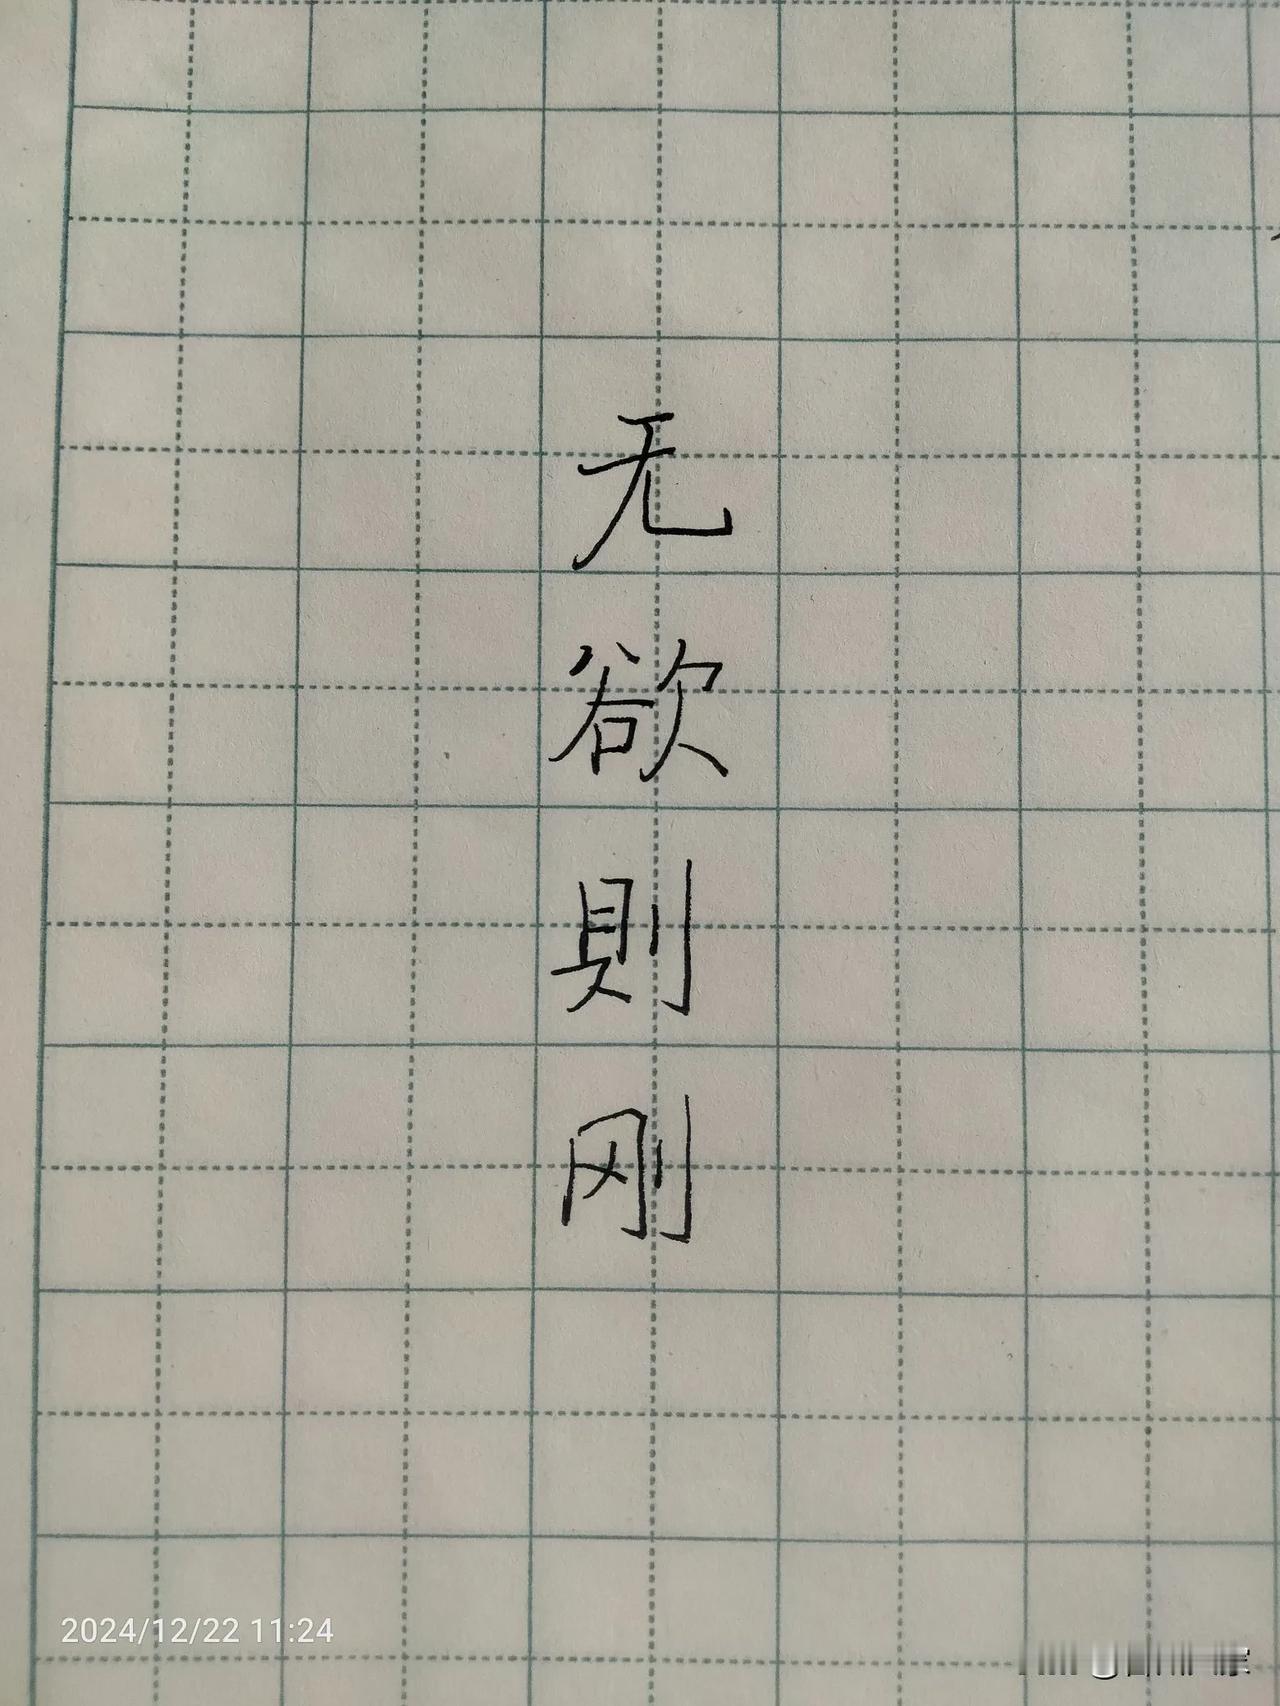 无欲則刚
2024/12/22 11:24